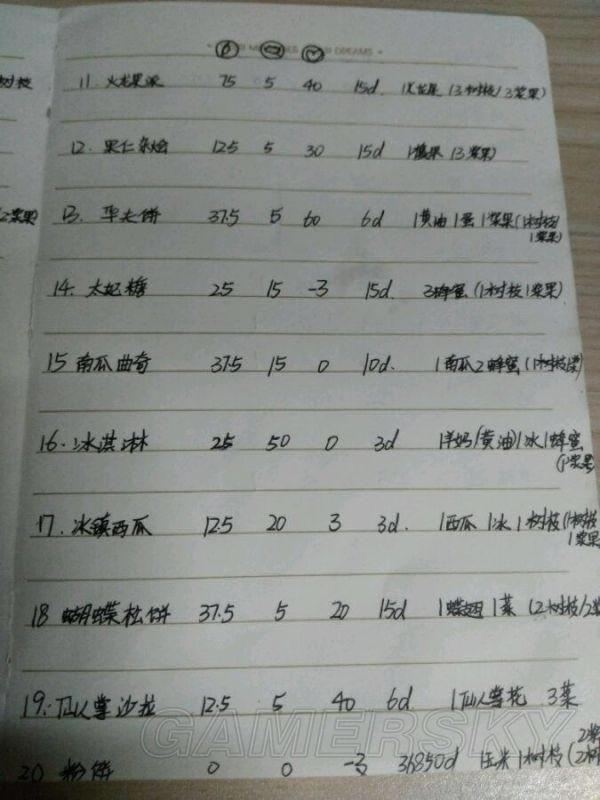 树枝
11. 火龙果派 75 5 40 15d. 1火龙果 (3树枝/3浆果)
12. 果仁杂烩 12.5 5 30 15d (3浆果)
2浆果)
13. 华夫饼 37.5 5 60 6d 1黄油 1蛋 1浆果(1树枝/
1浆果)
14. 太妃糖 25 15 -3 15d. 3蜂蜜 (1树枝1浆果)
15 南瓜曲奇 37.5 15 0 10d. 1南瓜2蜂蜜(1树枝
16. 冰淇淋 25 50 0 3d 1羊奶(黄油)1冰1蜂蜜
(1浆果)
17. 冰镇西瓜 12.5 20 3 3d. 1西瓜 1冰 1树枝(1树枝
1浆果
18 蝴蝶松饼 37.5 5 20 15d 1蝶翅 1菜 (2树枝/2浆
19. 仙人掌沙拉 12.5 5 40 6d 1仙人掌花 3菜
20 粉饼 0 0 -3 36850d 玉米 1树枝(
2浆
2树
GAMERSKY